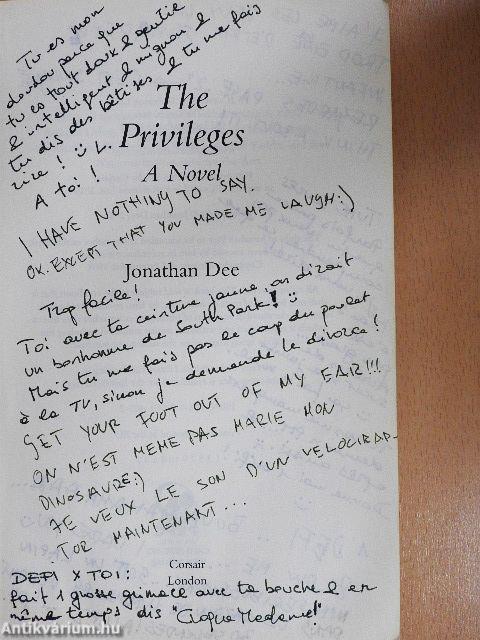 Tu es mon
doudou parce que
tu es tout doux & gentil
& intelligent & mignon &
tu dis des bêtises & tu me fais
rire ! :) L.
A toi !
The
Privileges
A Novel
I HAVE NOTHING TO SAY.
OK. EXCEPT THAT YOU MADE ME LAUGH :)
Jonathan Dee
Trop facile !
Toi avec ta ceinture jaune, on dirait
un bonhomme de South Park! :)
Mais tu me fais pas le coup du poulet
à la TV, sinon je demande le divorce !
GET YOUR FOOT OUT OF MY EAR!!!
ON N'EST MEME PAS MARIE MON
DINOSAURE :)
JE VEUX LE SON D'UN VELOCIRAP-
TOR MAINTENANT...
Corsair
London
DEFI X TOI :
fait 1 grosse grimace avec ta bouche & en
même temps dis "Croque Madame!"
Antikvarium.hu